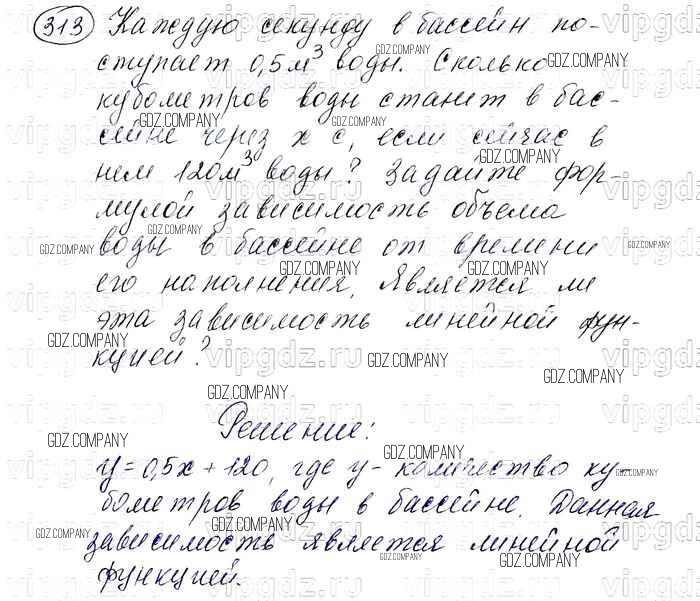 313 Каждую секунду в бассейн по-
ступает 0,5 м³ воды. Сколько
кубометров воды станет в бас-
сейне через x с, если сейчас в
нем 120 м³ воды? Задайте фор-
мулой зависимость объема
воды в бассейне от времени
его наполнения. Является ли
эта зависимость линейной фун-
кцией?
Решение:
y = 0,5x + 120, где y - количество ку-
бометров воды в бассейне. Данная
зависимость является линейной
функцией.